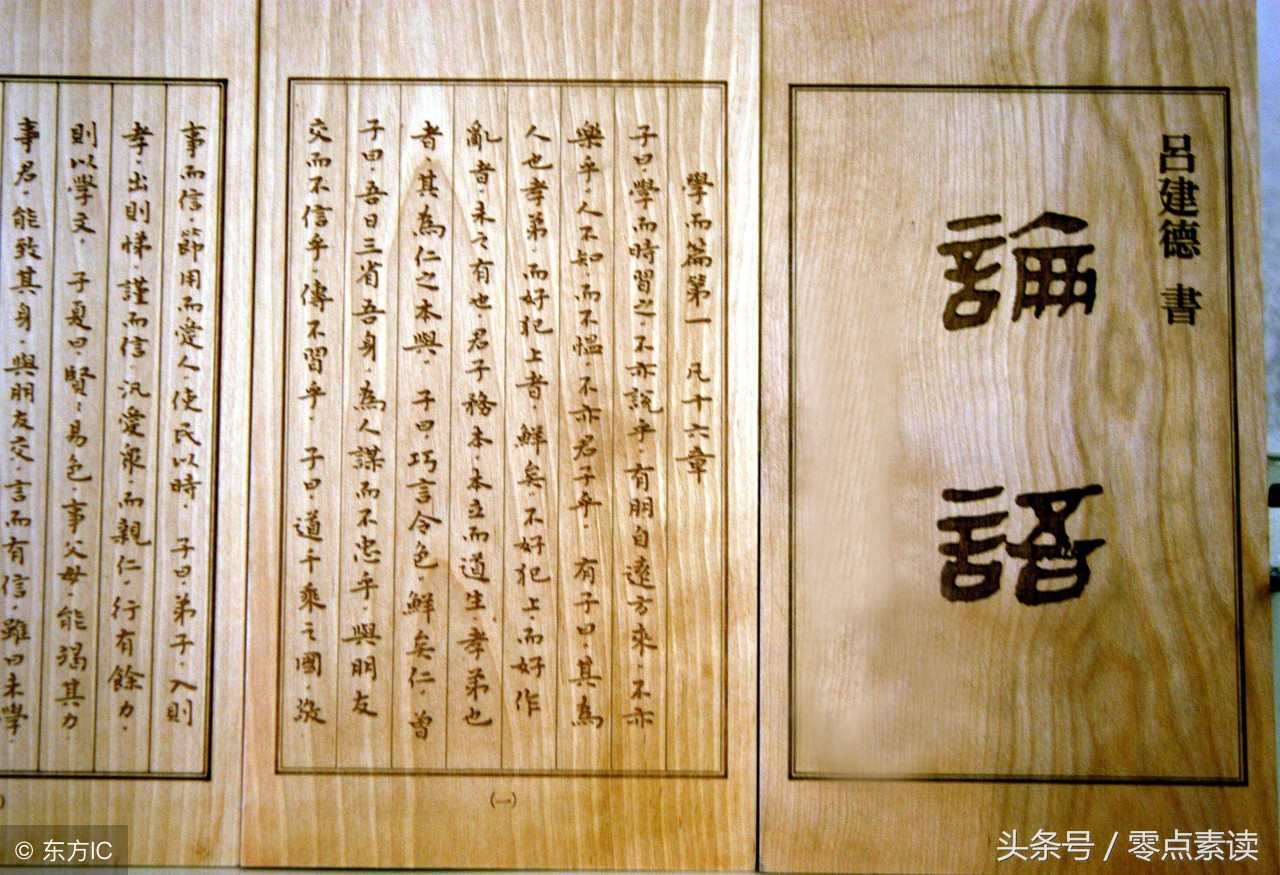 呂建德 書
論語
學而篇第一 凡十六章
子曰.學而時習之.不亦說乎.有朋自遠方來.不亦
樂乎.人不知.而不慍.不亦君子乎. 有子曰.其為
人也孝弟.而好犯上者.鮮矣.不好犯上.而好作
亂者.未之有也.君子務本.本立而道生.孝弟也
者.其為仁之本與. 子曰.巧言令色.鮮矣仁.曾
子曰.吾日三省吾身.為人謀而不忠乎.與朋友
交而不信乎.傳不習乎. 子曰.道千乘之國.敬
(一)
事而信.節用而愛人.使民以時. 子曰.弟子.入則
孝.出則悌.謹而信.汎愛眾.而親仁.行有餘力.
則以學文. 子夏曰.賢〻易色.事父母.能竭其力
事君.能致其身.與朋友交.言而有信.雖曰未學.
© 东方IC
头条号 / 零点素读